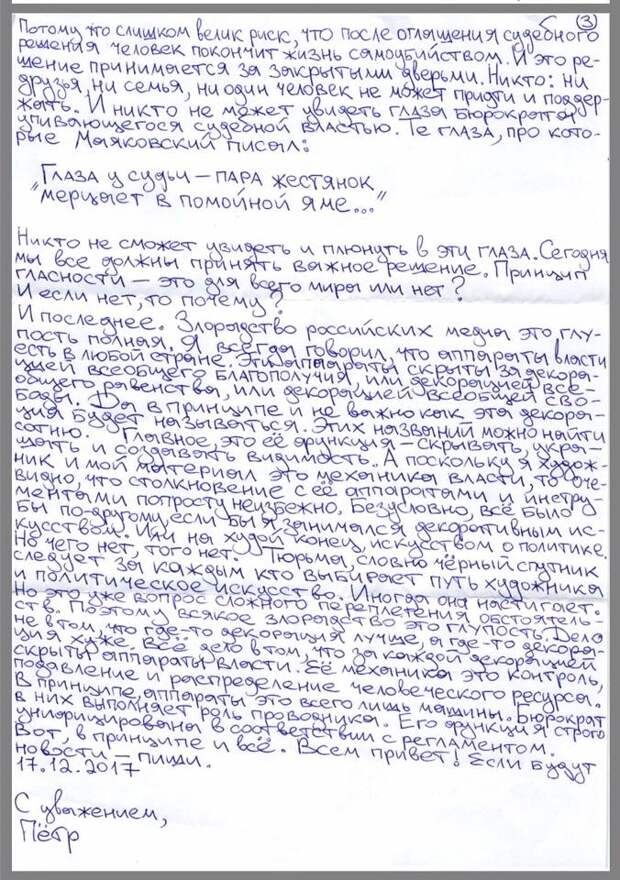 3
Потому что слишком велик риск, что после оглащения судебного
решения человек покончит жизнь самоубийством. И это ре-
шение принимается за закрытыми дверьми. Никто: ни
друзья, ни семья, ни один человек не может придти и поддер-
жать. И никто не может увидеть глаза бюрократа,
упивающегося судебной властью. Те глаза, про кото-
рые Маяковский писал:
„Глаза у судьи – пара жестянок
мерцает в помойной яме..."
Никто не сможет увидеть и плюнуть в эти глаза. Сегодня
мы все должны принять важное решение. Принцип
гласности – это для всего мира или нет?
И если нет, то почему?
И последнее. Злорадство российских медиа это глу-
пость полная. Я всегда говорил, что аппараты власти
есть в любой стране. Эти аппараты скрыты за декора-
цией всеобщего благополучия, или декорацией все-
общего равенства, или декорацией всеобщей сво-
боды. Да в принципе и не важно как эта декора-
ция будет называться. Этих названий можно найти
сотню. Главное, это её функция – скрывать, укра-
шать и создавать видимость. А поскольку я худож-
ник и мой материал это механика власти, то оче-
видно, что столкновение с её аппаратами и инстру-
ментами попросту неизбежно. Безусловно, всё было
бы по-другому, если бы я занимался декоративным ис-
кусством. Или на худой конец, искусством о политике.
Но чего нет, того нет. Тюрьма, словно чёрный спутник
следует за каждым кто выбирает путь художника
и политическое искусство. Иногда она настигает.
Но это уже вопрос сложного переплетения обстоятель-
ств. Поэтому всякое злорадство это глупость. Дело
не в том, что где-то декорация лучше, а где-то декора-
ция хуже. Всё дело в том, что за каждой декорацией
скрыты аппараты власти. Её механика это контроль,
подавление и распределение человеческого ресурса.
В принципе, аппараты это всего лишь машины. Бюрократ
в них выполняет роль проводника. Его функция строго
унифицирована в соответствии с регламентом.
Вот, в принципе и всё. Всем привет! Если будут
новости – пиши.
17.12.2017
С уважением,
Пётр